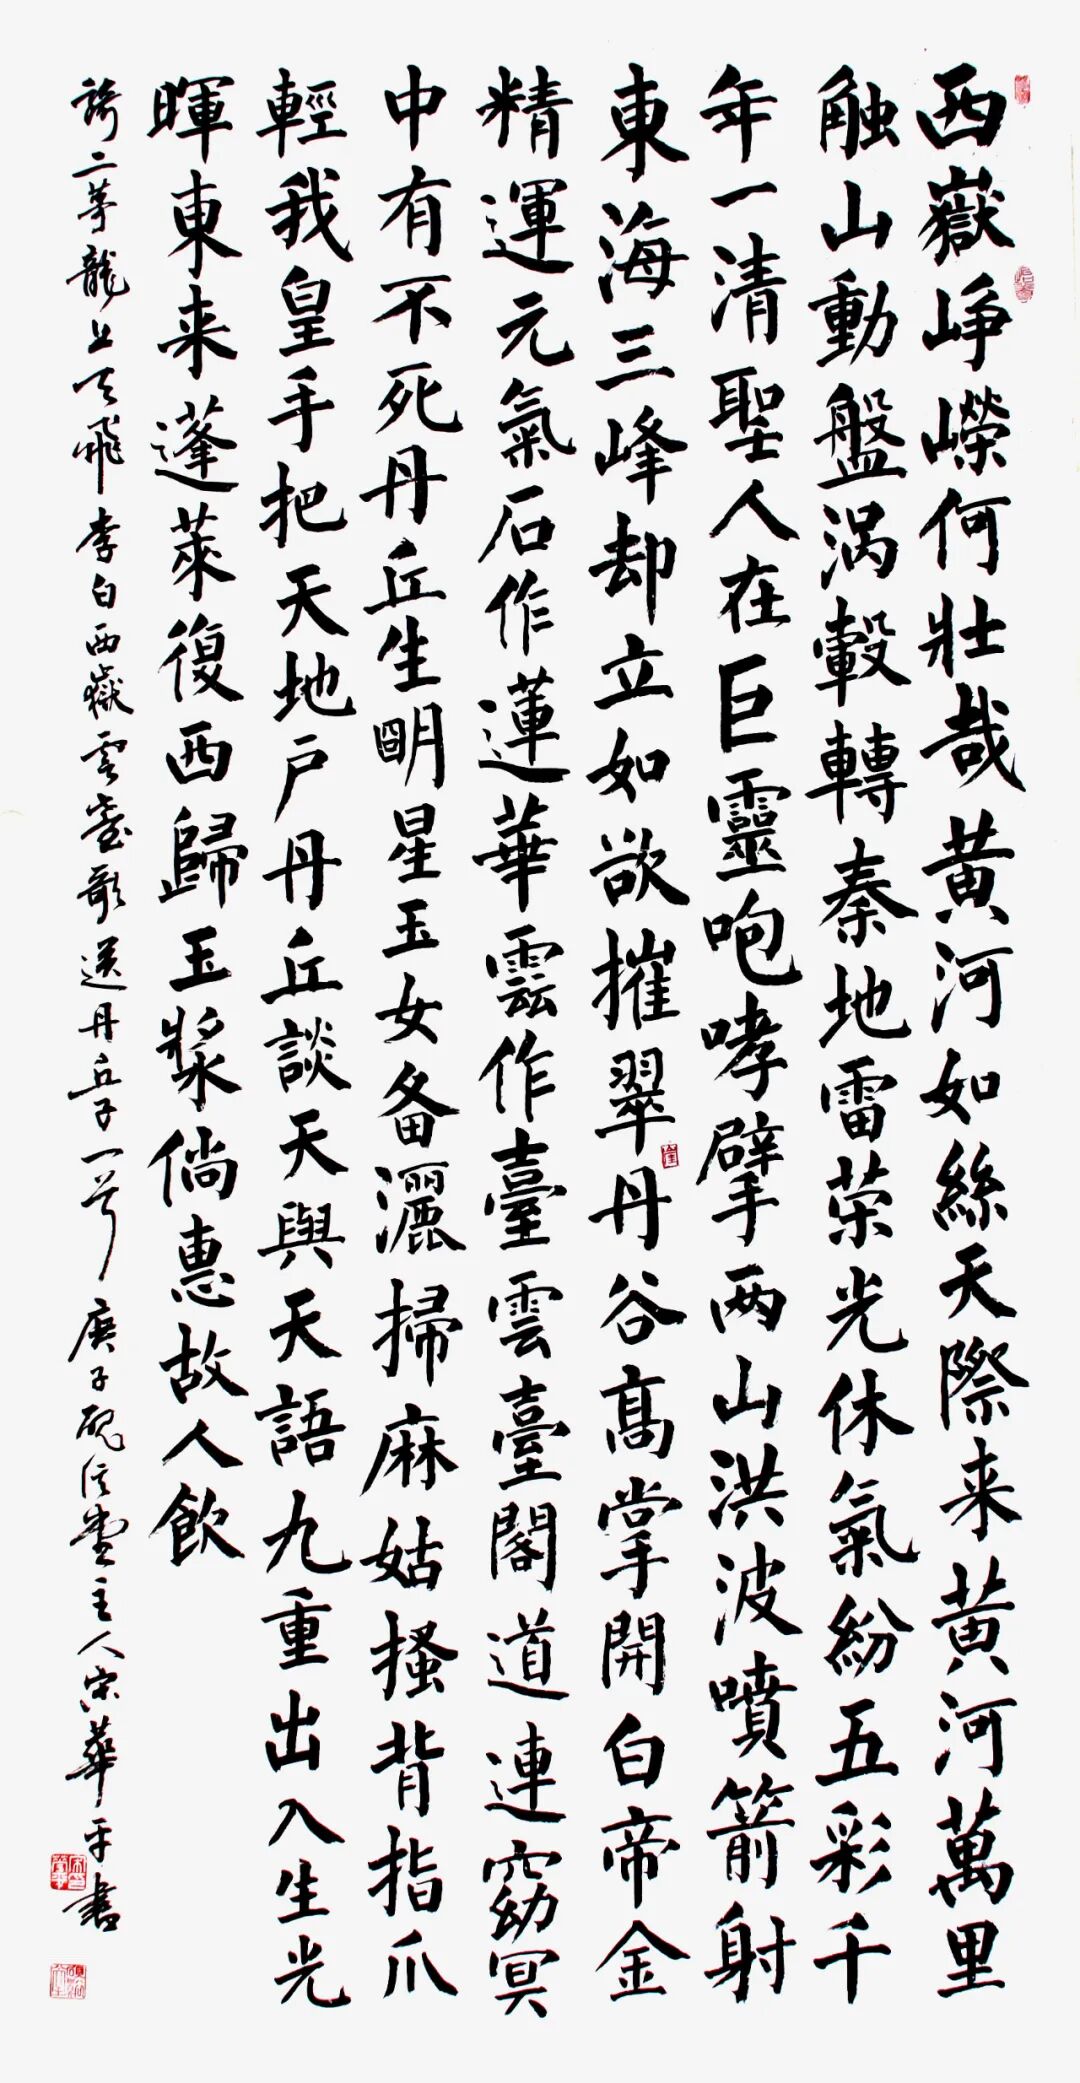 西嶽峥嶸何壯哉黄河如絲天際来黄河萬里
触山動盤涡轂轉秦地雷荣光休氣紛五彩千
年一清聖人在巨靈咆哮擘两山洪波噴箭射
東海三峰却立如欲摧翠丹谷髙掌開白帝金
精運元氣石作蓮華雲作臺雲臺閣道連窈冥
中有不死丹丘生明星玉女备灑掃麻姑搔背指爪
輕我皇手把天地户丹丘談天與天語九重出入生光
暉東来蓬萊復西歸玉漿倘惠故人飲
騎二茅龍上天飛 李白西嶽雲臺歌送丹丘子一首 庚子堂主人宋華平書